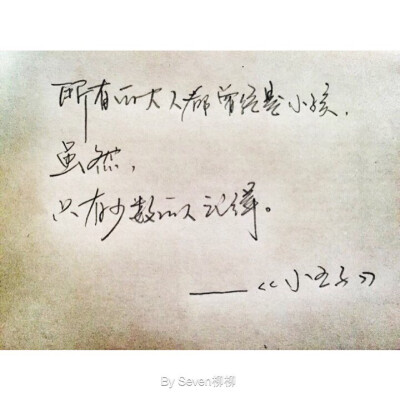 所有的大人都曾经是小孩，
虽然，
只有少数的人记得。
——《小王子》
By Seven柳柳